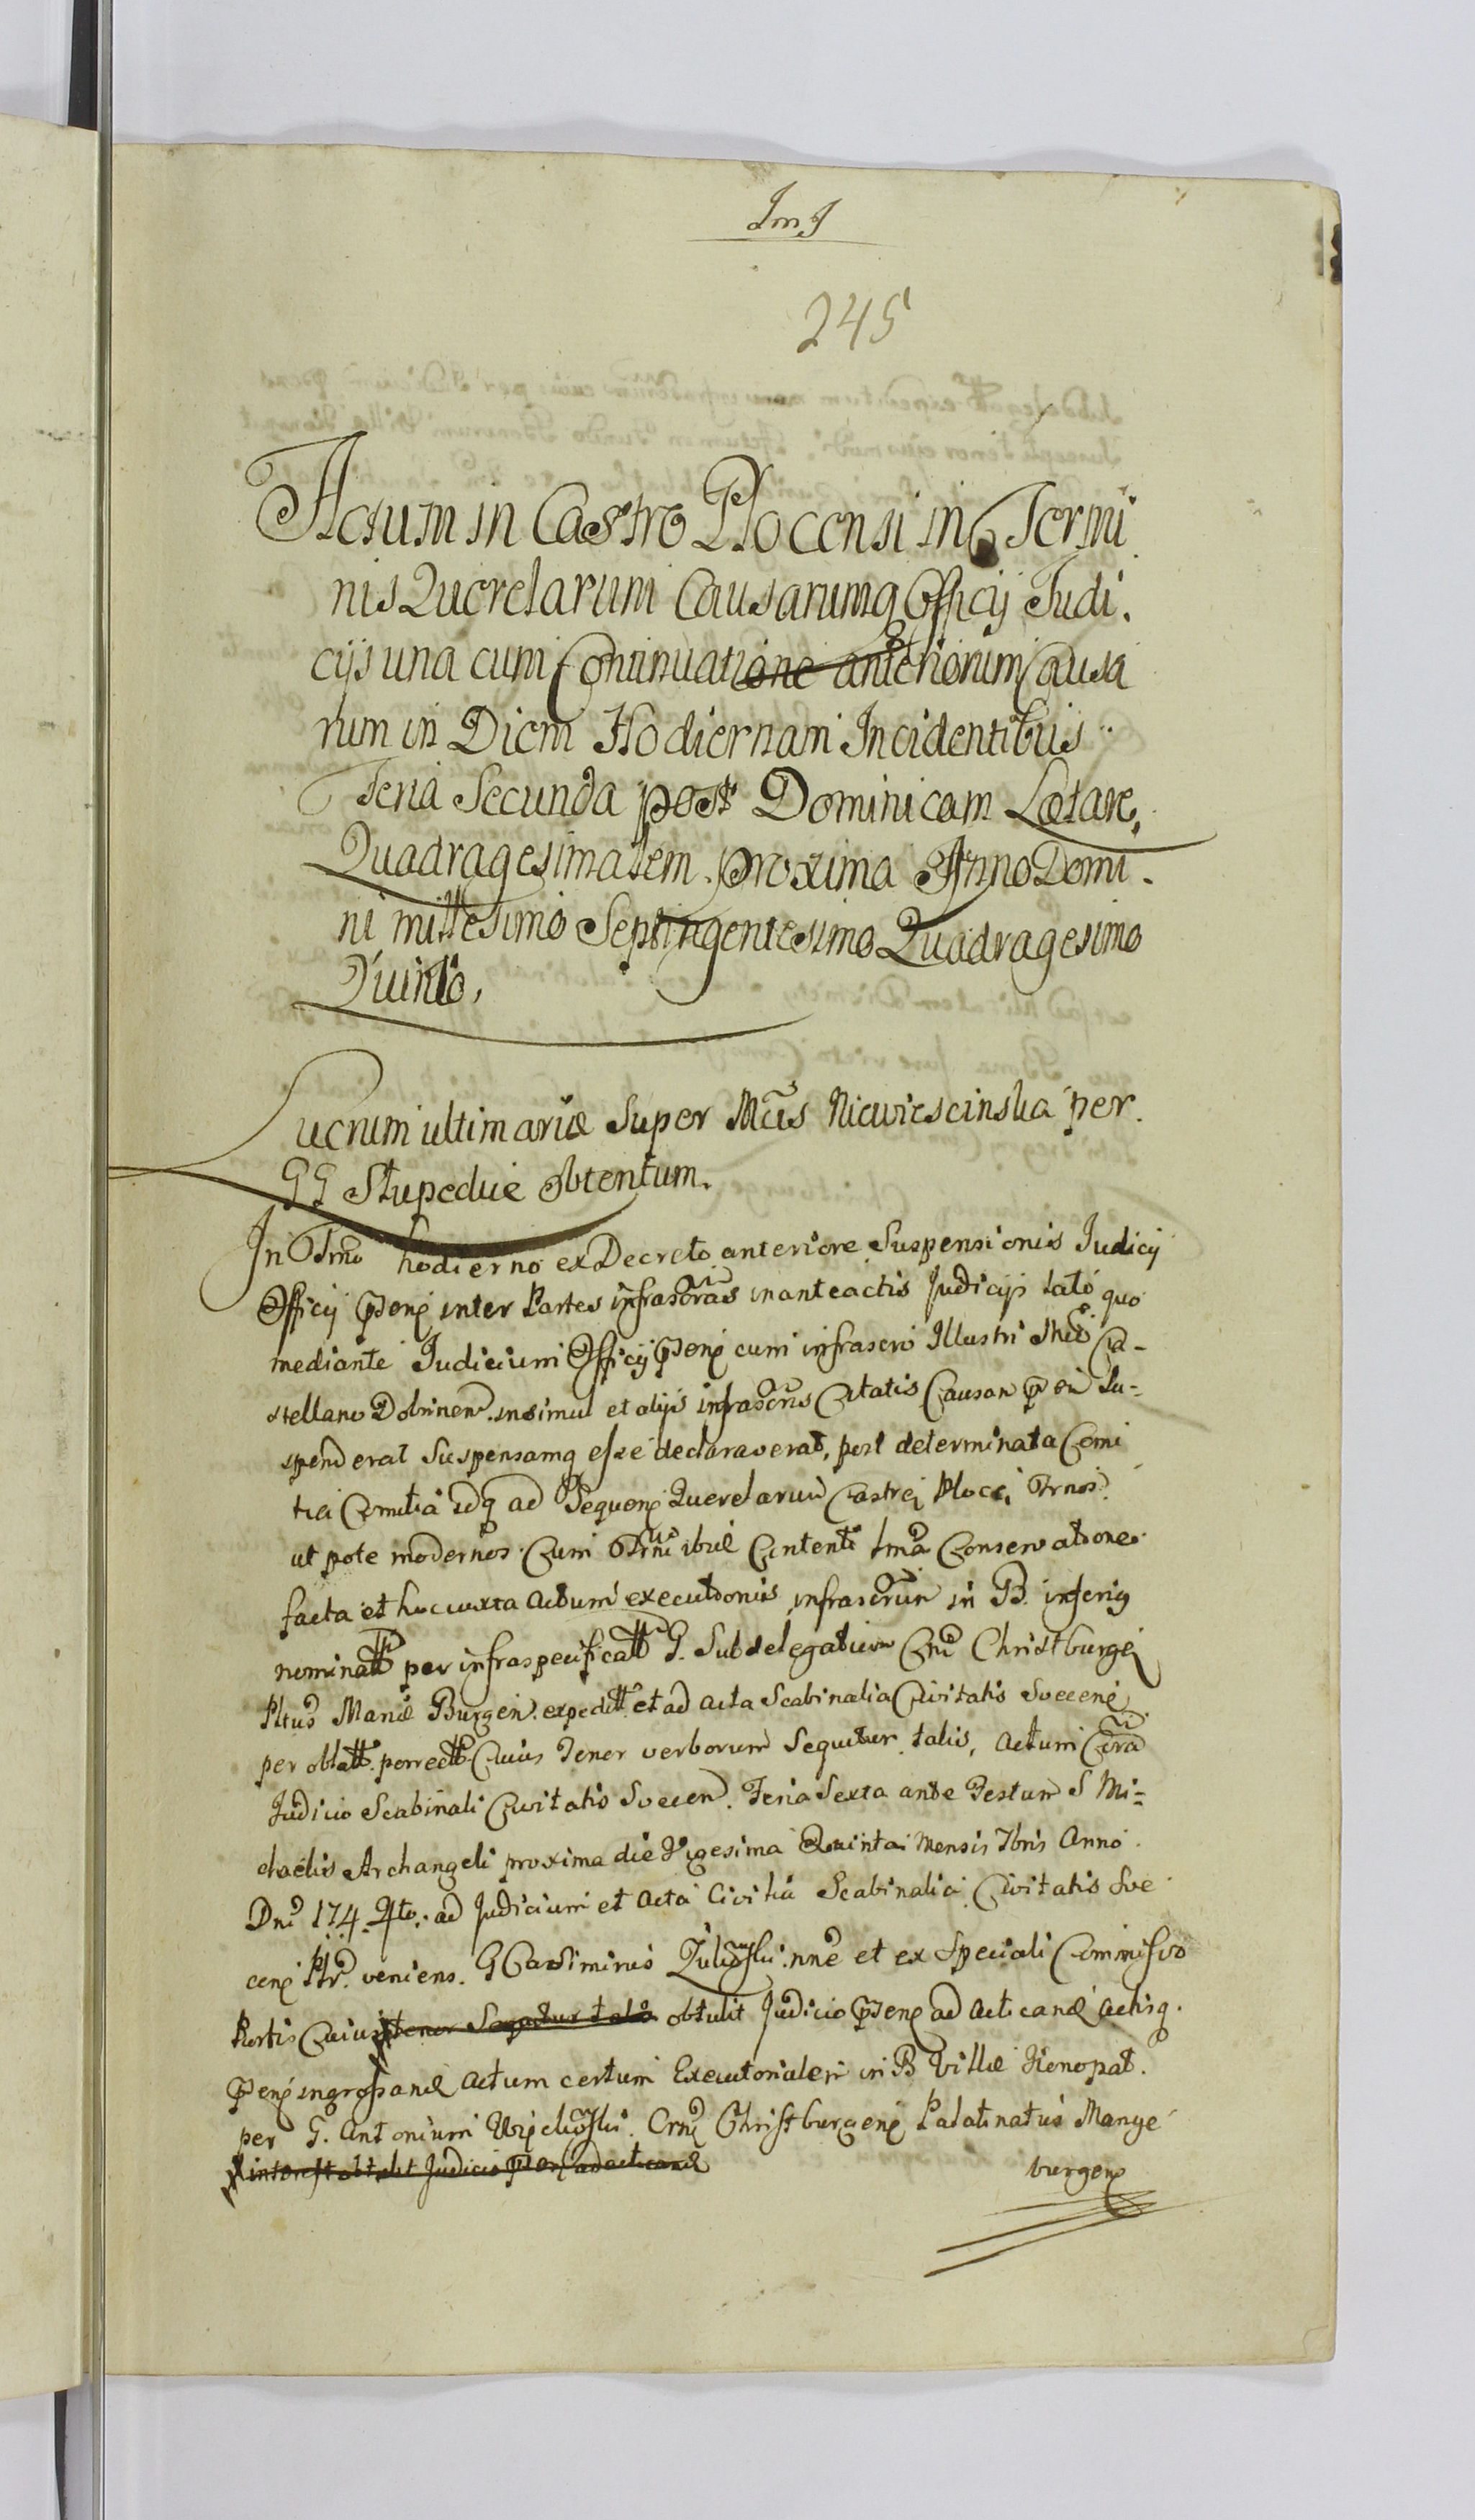 ImJ
245
Actum in Castro Plocensi in Termi
nis Querelarum Causarumq Officij Judi.
cijs una cum Continuatione anteriorum Causa
rum in Diem Hodiernam Incidentibus
Feria Secunda post Dominicam Lætare,
Quadragesimalem proxima Anno Domi-
ni millesimo Septingentesimo Quadragesimo
Quinto,
Lucrum ultimariæ super Mcis Niewiescinska per
GG Slupeckie obtentum.
In Trno hodierno ex Decreto anteriore Suspensionis Judicij
Officij Pseng inter Partes infrascras in anteactis Judicijs lato quo
mediante Judicium Officij Pseng cum infrascro Illustri Mco Ca-
stellano Dobrinen. insimul et alijs infrascris Citatis Causam Psen Su-
spenderat Suspensamq esse declaraverat, post determinata Comi
tia Comitia idq ad Sequeng Querelarum Castreg Plocē Trnos
ut pote modernos. Cum Trni ibid Contenti Ima Conservatione
facta et hoc iuxta Actum executionis infrascrum in B. inferig
nominatt per infraspecificatt G. Subdelegatum Cnri Christburgeg
Pltus Mariæ Burgen. expeditt et ad acta Scabinalia Civitatis Sveceng
per oblatt. porrectt Cuius Tenor verborum Sequitur talis, Actum Cora
Judicio Scabinali Civitatis Svecen. Feria Sexta ante Festum S Mi=
chaelis Archangeli proxima die Vigesima Quinta Mensis 7bris Anno
Dni 174 4to. ad Judicium et Acta Civilia Scabinalia Civitatis Sve
ceng Plr. veniens. G Casimirus nne et ex Speciali Commisso
Partis Cuius tenor Sequitur talis obtulit Judicio Pseng ad acticand actisq.
Pseng ingrossand Actum certum Executorialem in B Villæ Konopat.
per G. Antonium Crnj Christburgeng Palatinatus Marye
interest obtulit Judicio Pseng ad acticand
burgeng